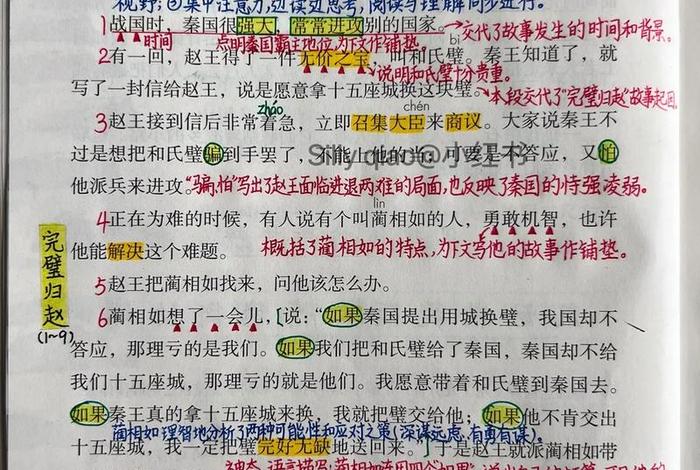 视野;②集中注意力,边读边思考,阅读与理解同步进行。
1战国时,秦国很强大,常常进攻别的国家。→交代了故事发生的时间和背景。
时间 点明秦国霸主地位,为下文作铺垫。 bì
2有一回,赵王得了一件无价之宝,叫和氏璧。秦王知道了,就
说明和氏璧十分贵重。
写了一封信给赵王,说是愿意拿十五座城换这块璧。
本段交代了“完璧归赵”故事起因
zháo chén
3赵王接到信后非常着急,立即召集大臣来商议。大家说秦王不
过是想把和氏璧骗到手罢了,不能上他的当;可要是不答应,又怕
Silly qiao@小红书
他派兵来进攻。“骗,怕”写出了赵王面临进退两难的局面,也反映了秦国的恃强凌弱。
lìn
4正在为难的时候,有人说有个叫蔺相如的人,勇敢机智,也许
他能解决这个难题。 概括了蔺相如的特点,为下文写他的故事作铺垫。
完璧归赵
(1~9)
5赵王把蔺相如找来,问他该怎么办。
6蔺相如想了一会儿,[说:“如果秦国提出用城换璧,我国却不
答应,那理亏的是我们。如果我们把和氏璧给了秦国,秦国却不给
我们十五座城,那理亏的就是他们。我愿意带着和氏璧到秦国去。
如果秦王真的拿十五座城来换,我就把璧交给他;如果他不肯交出
蔺相如理智地分析了两种可能性和应对之策(深谋远虑,有勇有谋)。
十五座城,我一定把璧完好无缺地送回来。”]于是赵王就派蔺相如带